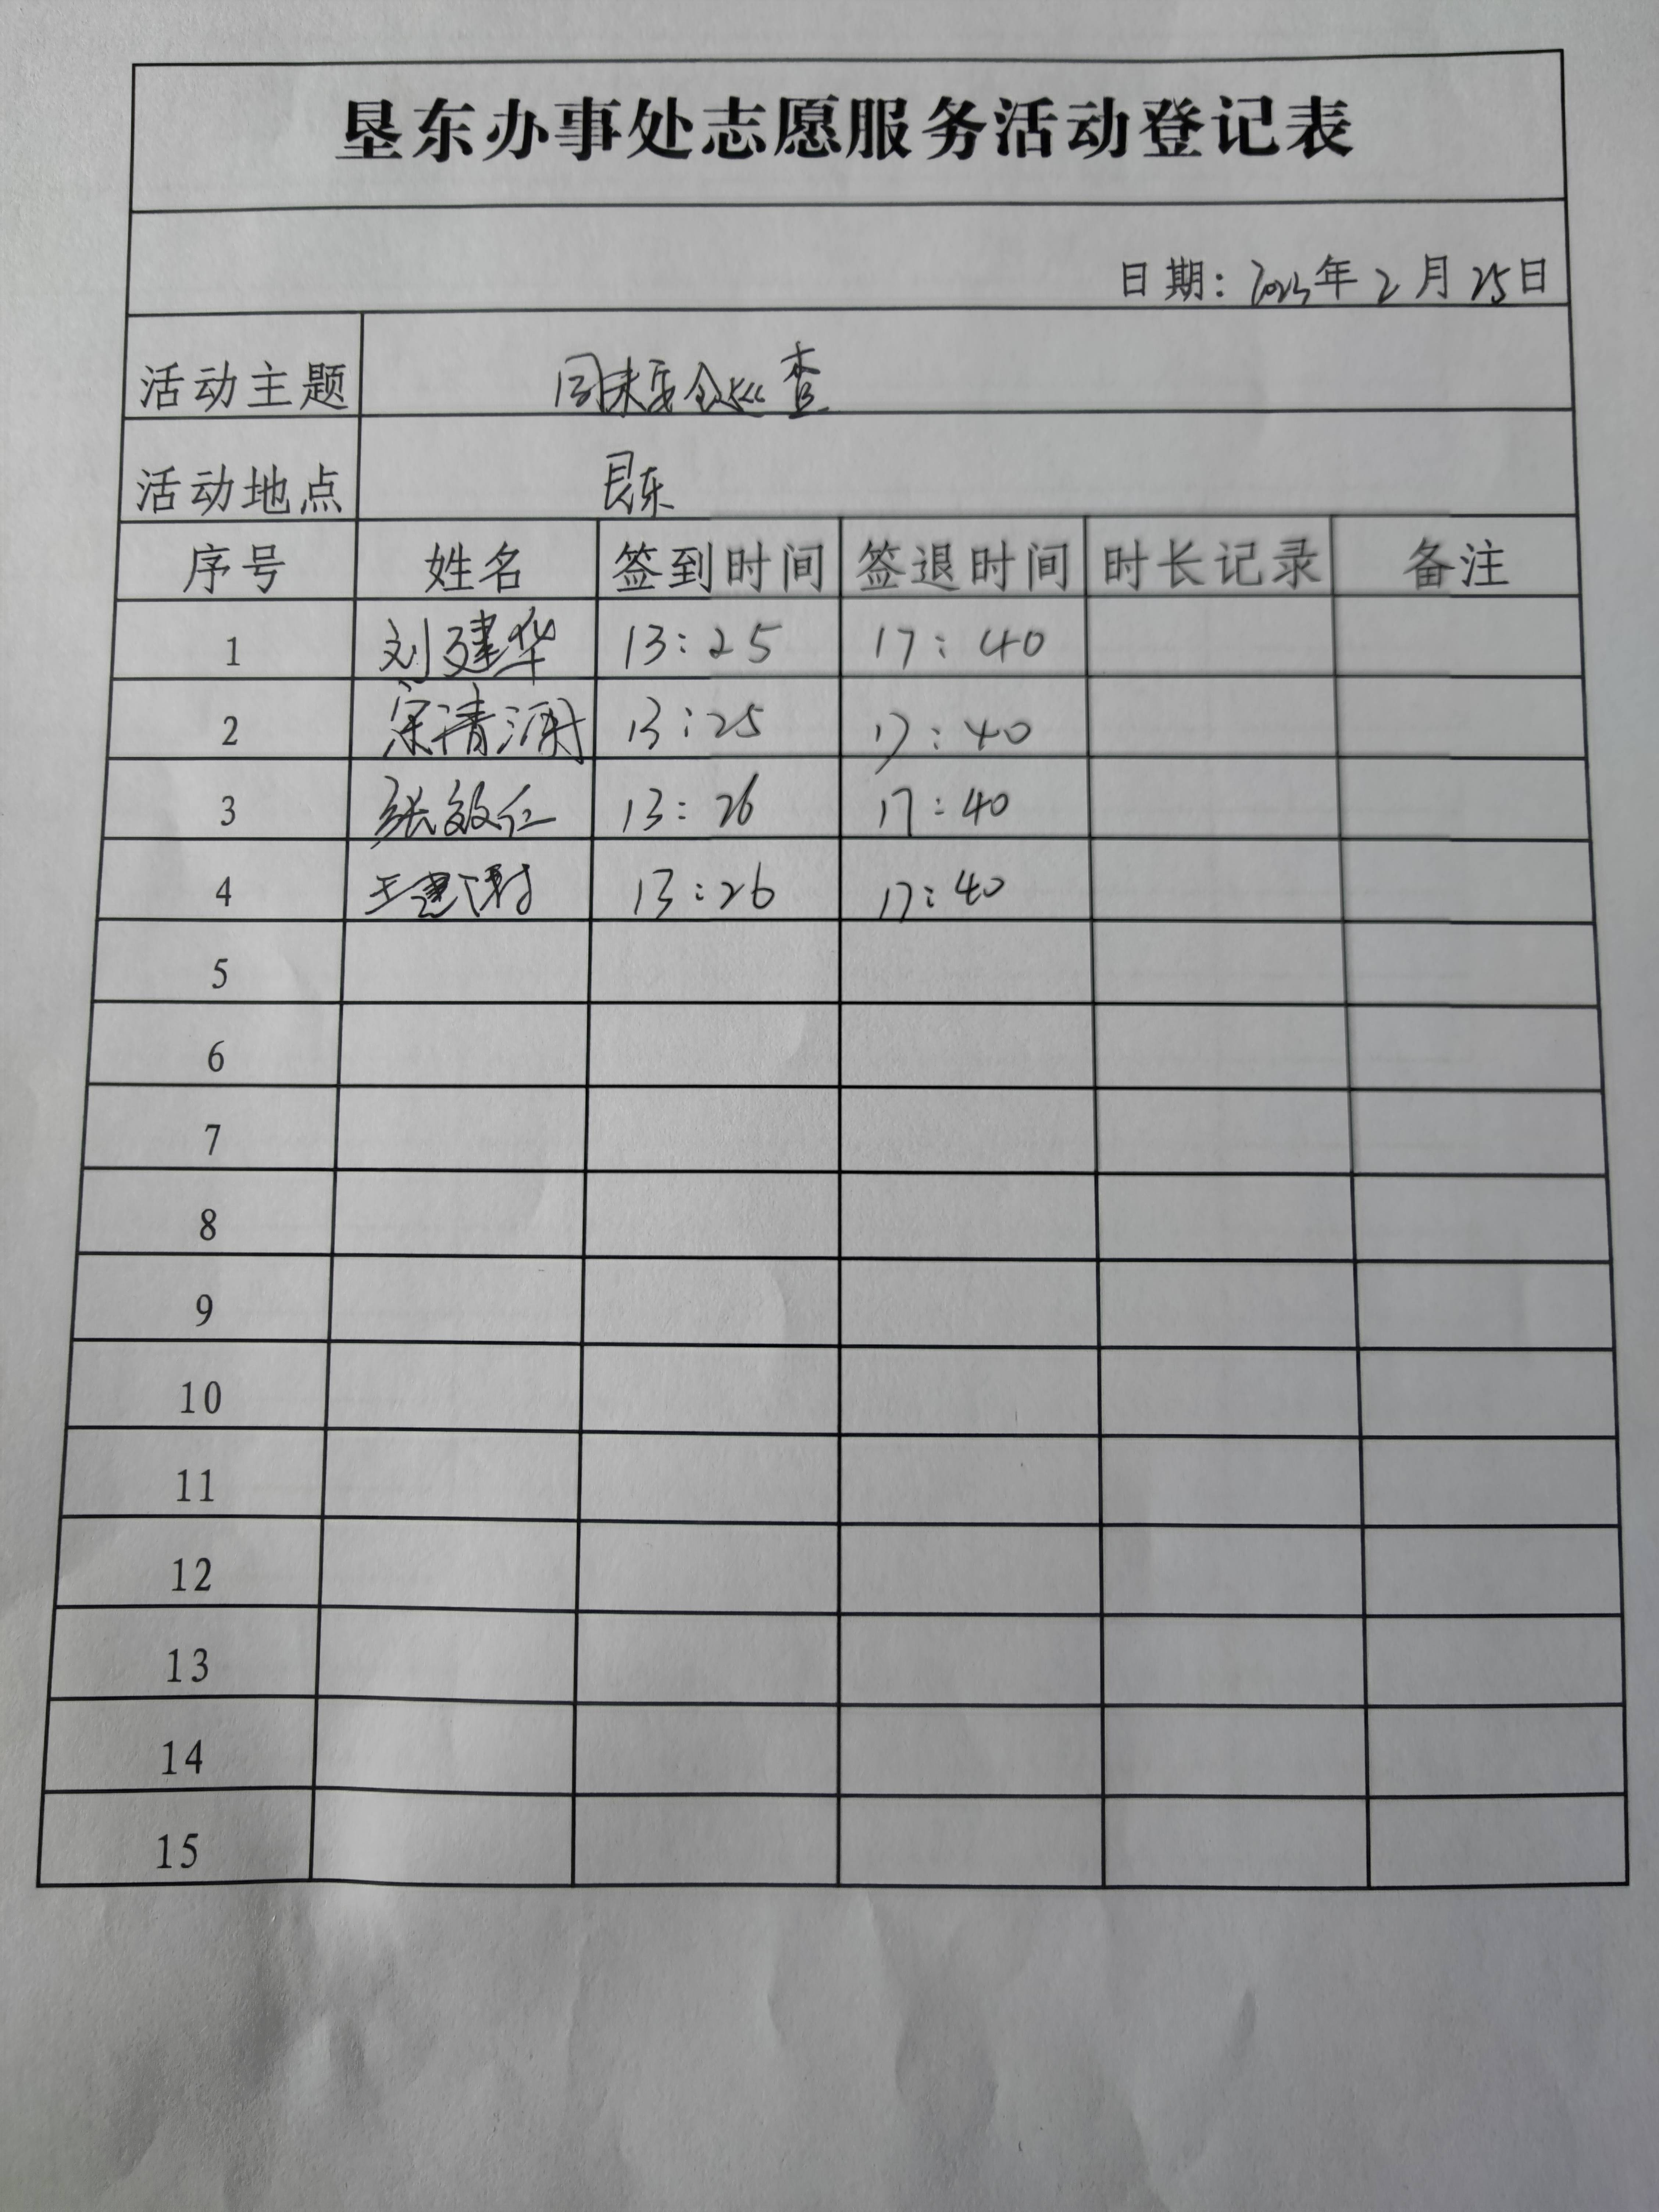 垦东办事处志愿服务活动登记表
日期：2023年2月25日
活动主题 周末安全巡查
活动地点 垦东
序号 姓名 签到时间 签退时间 时长记录 备注
1 刘建华 13:25 17:40
2 宋清 13:25 17:40
3 张效仁 13:26 17:40
4 王建 13:26 17:40
5
6
7
8
9
10
11
12
13
14
15